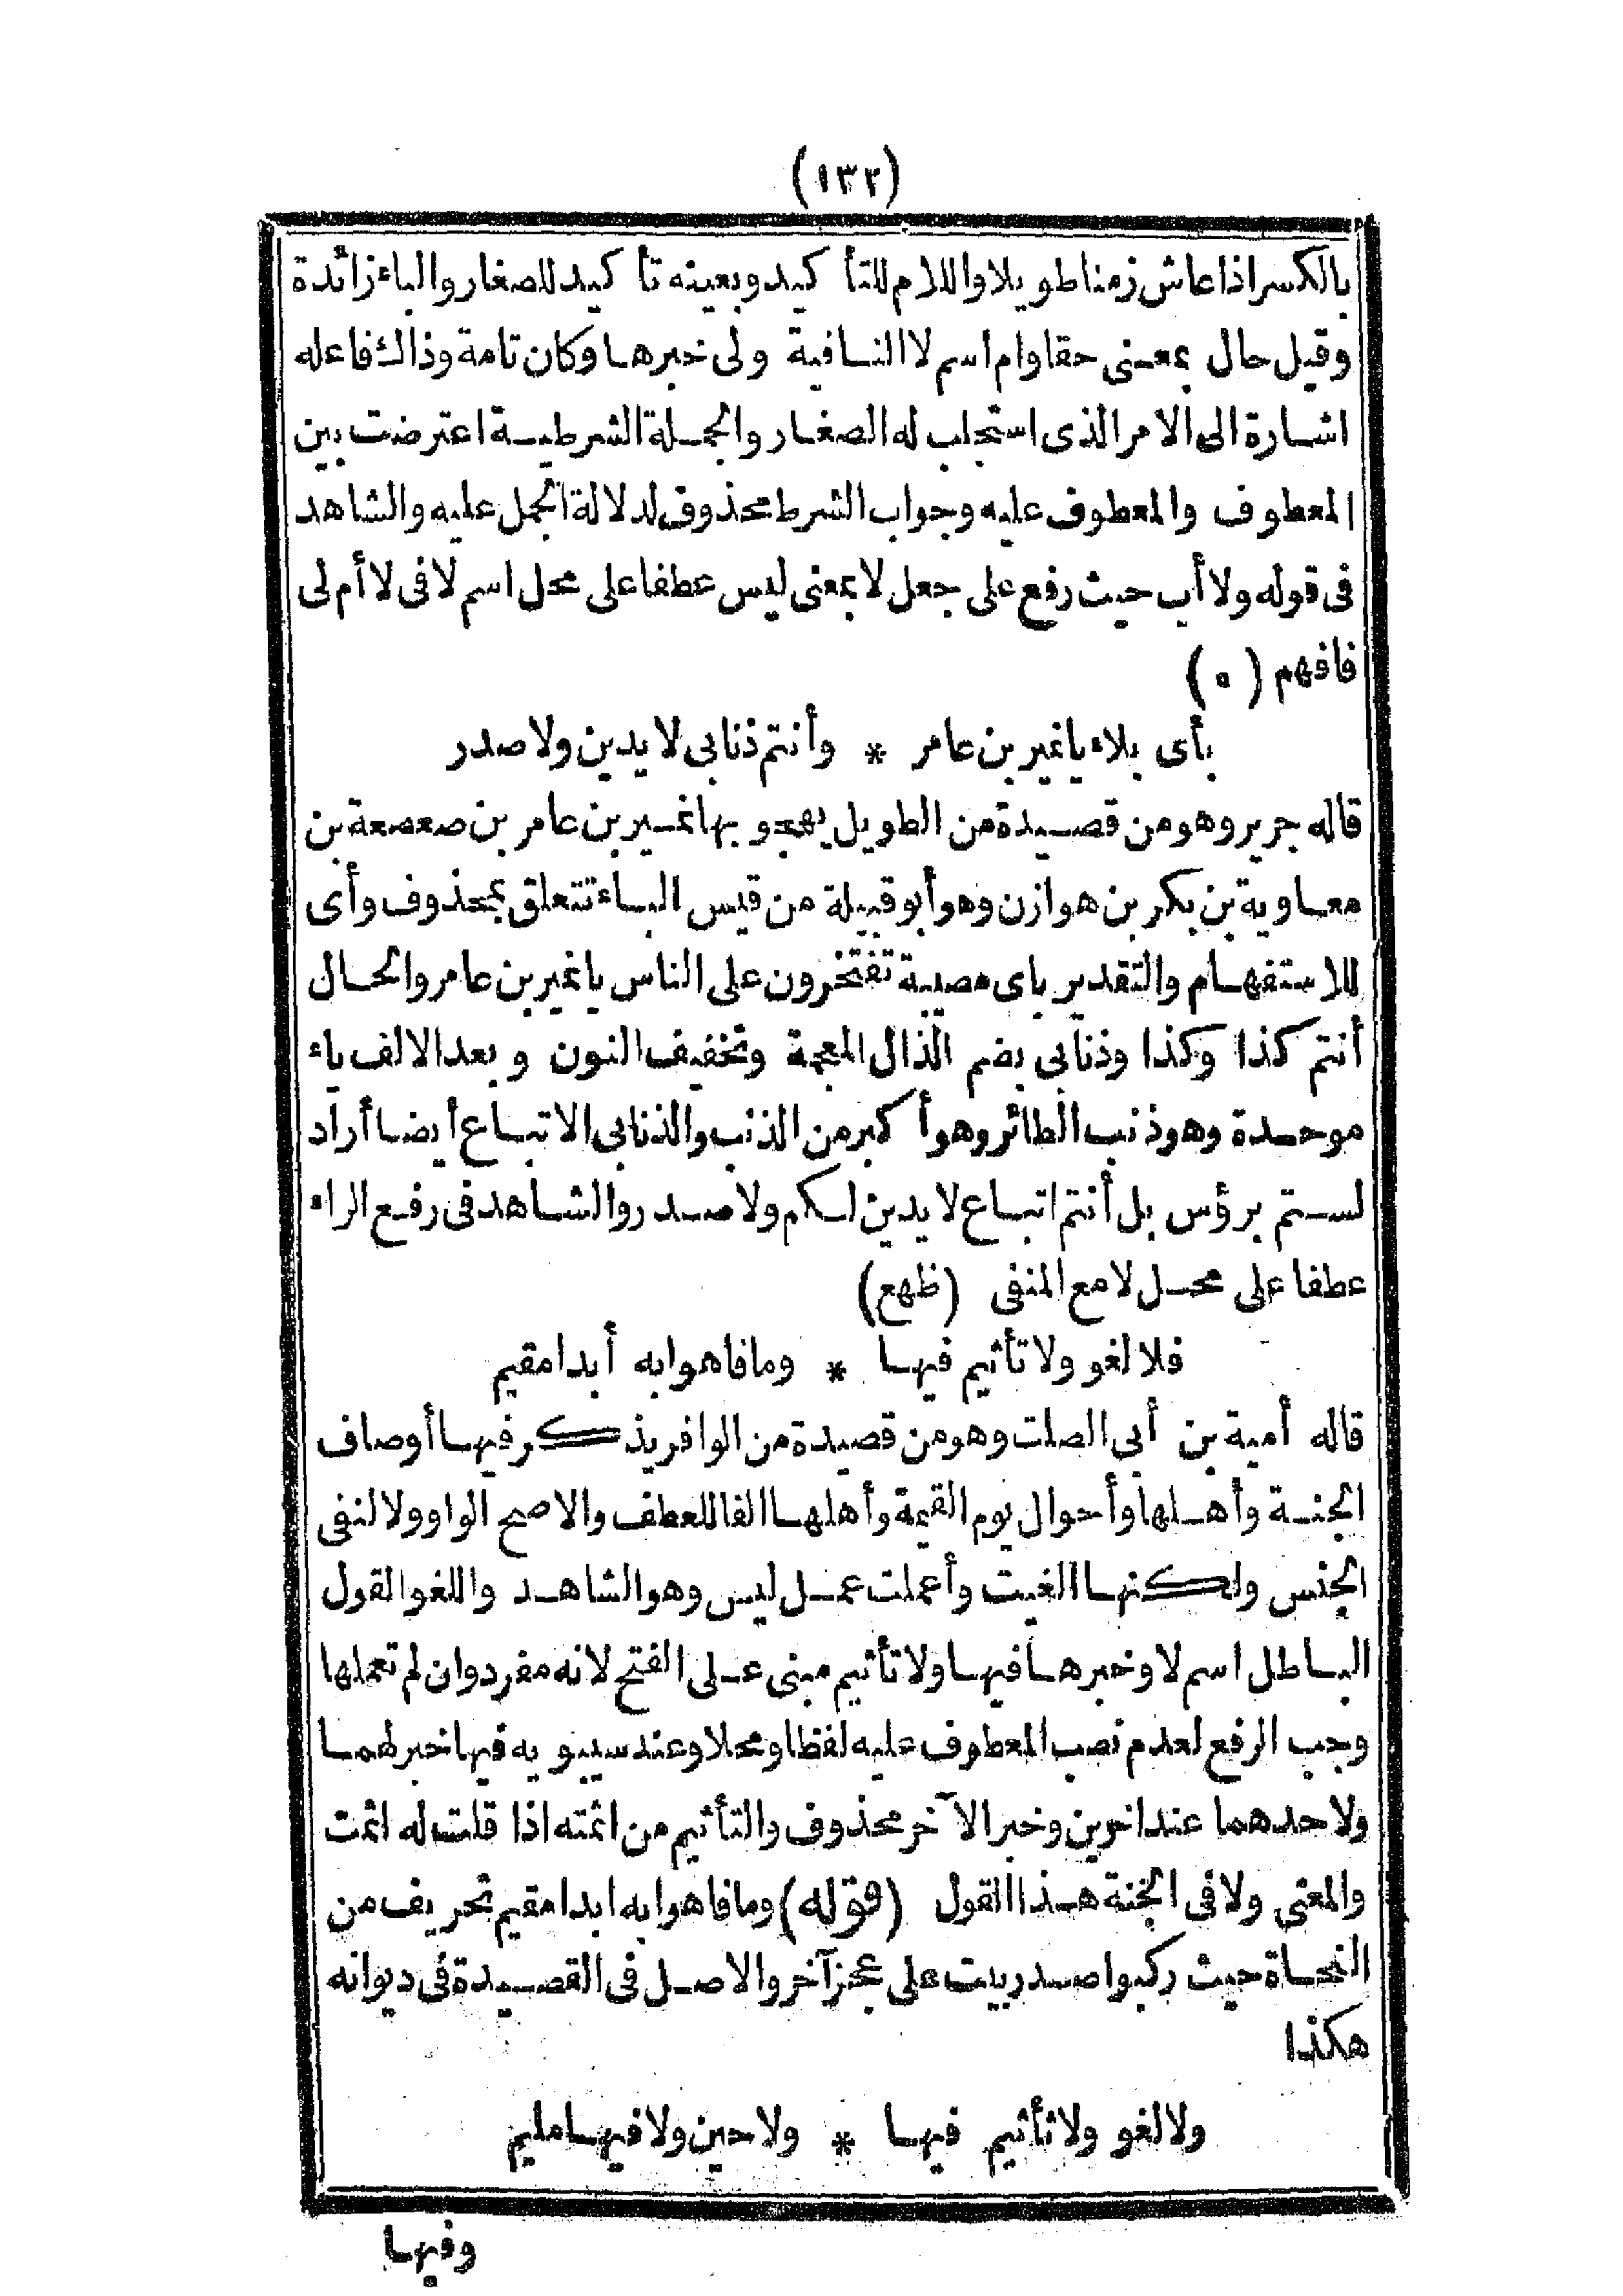 (١٣٢)
بالكسر اذا عاش زمنا طويلا واللام للتأكيد وبعينه تأكيد للصغار والباء زائدة
وقيل حال بمعنى حقا وام اسم لا النافية ولى خبرها وكان تامة وذاك فاعله
اشارة الى الامر الذى استجلب له الصغار والجملة الشرطية اعترضت بين
المعطوف والمعطوف عليه وجواب الشرط محذوف لدلالة الجمل عليه والشاهد
فى قوله ولا أب حيث رفع على جعل لا بمعنى ليس عطفا على محل اسم لا فى لا أم لى
فافهم (ه)
بأى بلاء يا نمير بن عامر * وأنتم ذنابى لا يدين ولا صدر
قاله جرير وهو من قصيدة من الطويل يهجو بها نمير بن عامر بن صعصعة بن
معاوية بن بكر بن هوازن وهو أبو قبيلة من قيس الباء تتعلق بمحذوف وأى
للاستفهام والتقدير باى مصيبة تفتخرون على الناس يا نمير بن عامر والحال
أنتم كذا وكذا وذنابى بضم الذال المعجمة وتخفيف النون وبعد الالف باء
موحدة وهو ذنب الطائر وهو أكبر من الذنب والذنابى الاتباع أيضا أراد
لستم برؤس بل أنتم اتباع لا يدين لكم ولا صدر والشاهد فى رفع الراء
عطفا على محل لا مع المنفى (ظهع)
فلا لغو ولا تأثيم فيها * وما فاهوا به أبدا مقيم
قاله أمية بن أبى الصلت وهو من قصيدة من الوافر يذكر فيها أوصاف
الجنة وأهلها وأحوال يوم القيمة وأهلها الفا للعطف والاصح الواو ولا لنفى
الجنس ولكنها الغيت وأعملت عمل ليس وهو الشاهد واللغو القول
الباطل اسم لا وخبرها فيها ولا تأثيم مبنى على الفتح لانه مفرد وان لم تعملها
وجب الرفع لعدم نصب المعطوف عليه لفظا ومحلا وعند سيبويه فيها خبر لهما
ولاحدهما عند اخرين وخبر الآخر محذوف والتأثيم من اثمته اذا قلت له اثمت
والمعنى ولا فى الجنة هذا القول (قوله) وما فاهوا به ابدا مقيم تحريف من
النحاة حيث ركبوا صدر بيت على عجز آخر والاصل فى القصيدة فى ديوانه
هكذا
ولا لغو ولا تأثيم فيها * ولا حين ولا فيها مليم
وفيها